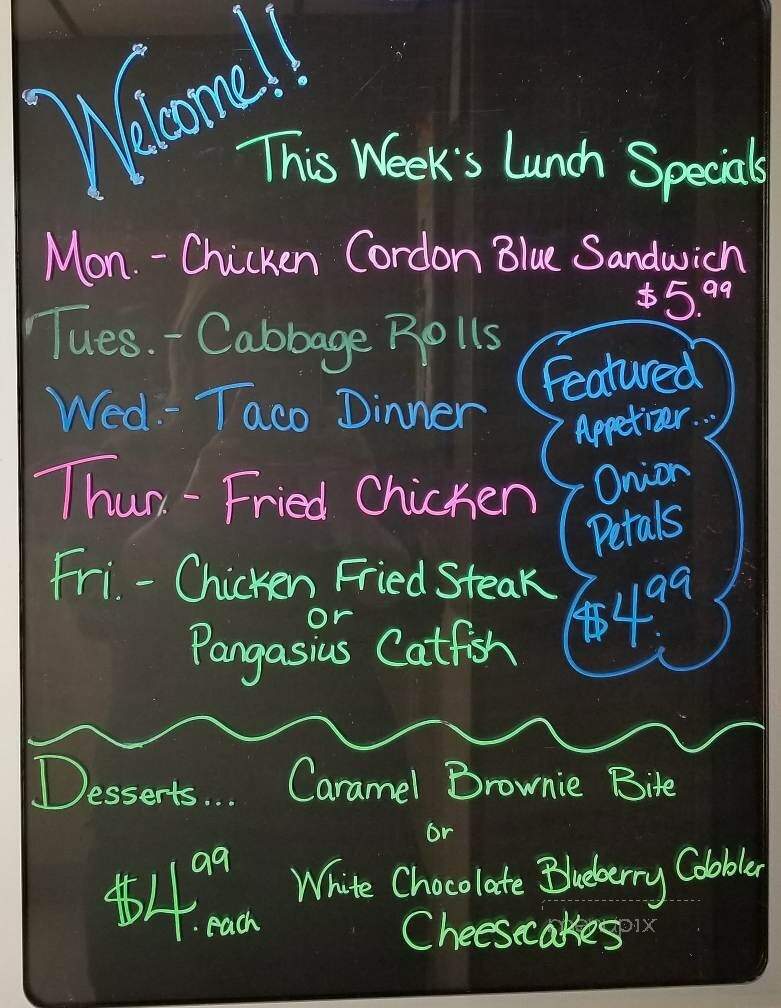 Welcome!!
This Week's Lunch Specials
Mon. - Chicken Cordon Blue Sandwich
$5.99
Tues. - Cabbage Rolls
Wed. - Taco Dinner
Thur. - Fried Chicken
Fri. - Chicken Fried Steak
or
Pangasius Catfish
Featured
Appetizer...
Onion
Petals
$4.99
Desserts... Caramel Brownie Bite
or
$4.99 each
White Chocolate Blueberry Cobbler
Cheesecakes
menupix